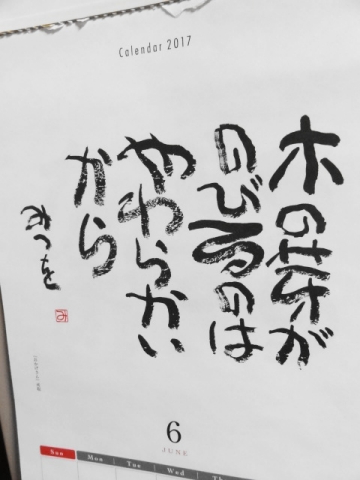 Calendar 2017
木の芽が
のびるのは
やわらかい
から
みつを
6
JUNE
Sun Mon Tue Wed Thu